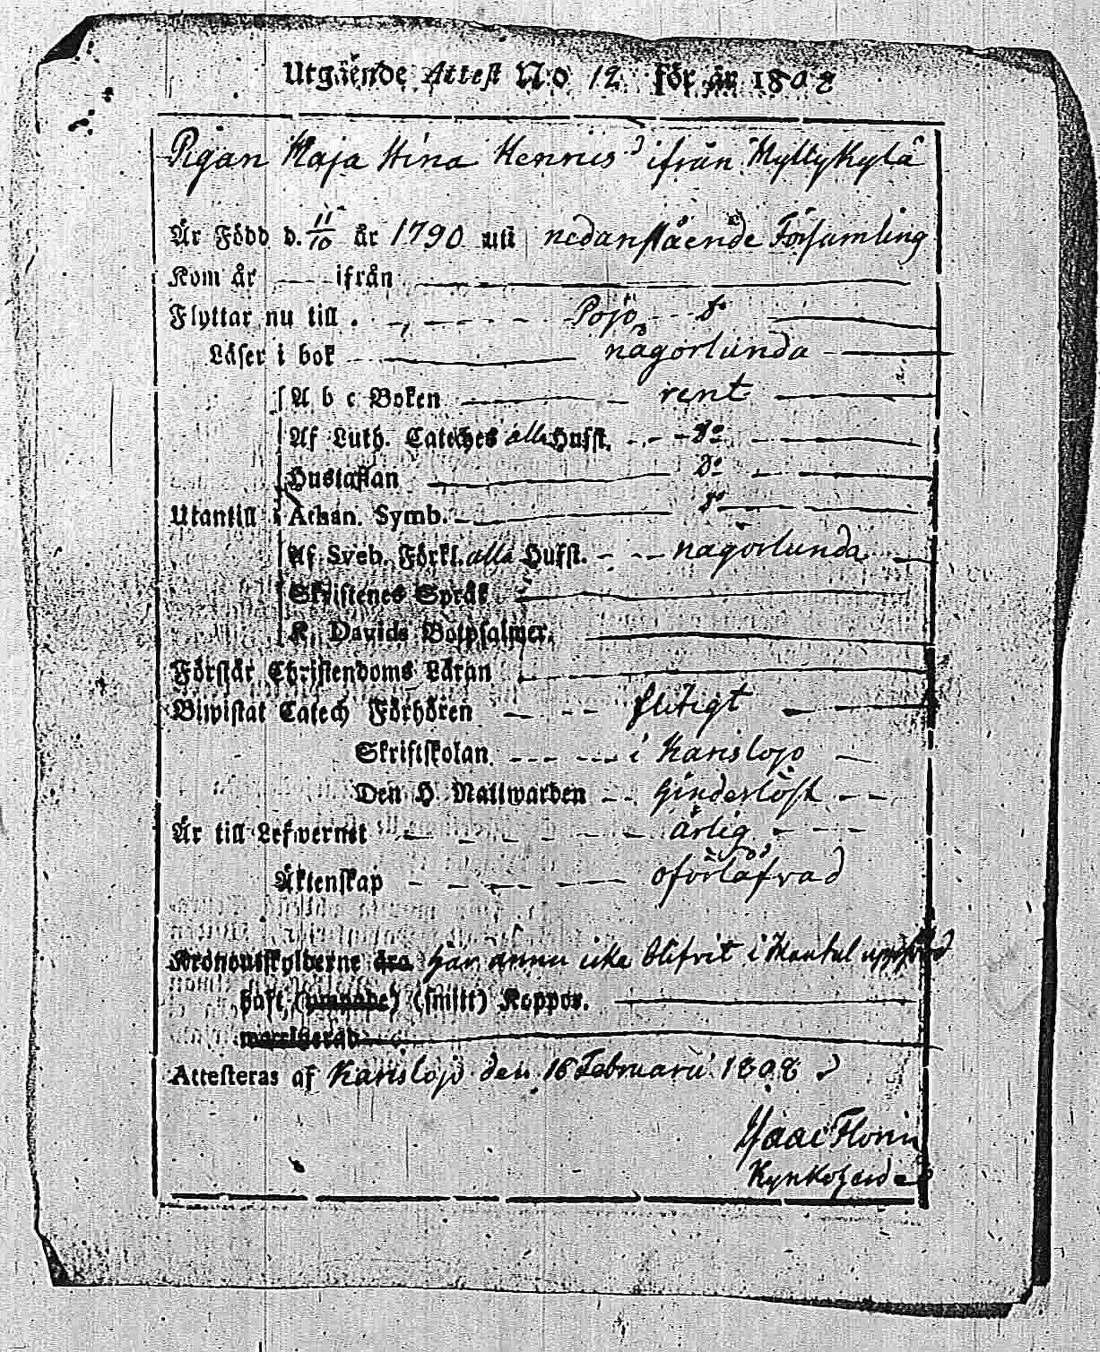 Utgående Attest No 12 för år 1808
Pigan Maja Stina Henrics d ifrån Myllykylä
Är Född d. 11/10 år 1790 uti nedanstående Församling
Kom år ifrån
Flyttar nu till Pojo
Läser i bok någorlunda
A b c Boken rent
Af Luth. Cateches alla Hufst. do
Hustaflan do
Utantill Athan. Symb. do
Af Sveb. Förkl. alla Hufst. någorlunda
Skriftenes Språk
K. Davids Botpsalmer.
Förstår Christendoms Läran
Biwistat Catech Förhören flitigt
Skriftskolan i Karislojo
Den H Nattwarden hinderslöst
Är till Lefwernet ärlig
Äktenskap oförlåfvad
Kronoutskylderne äro har ännu icke blifvit i Mantal uppförd
haft (ympade) (smitt) Koppor.
Attesteras af Karislojo den 18 Februarii 1808
Isaac Florin
Kyrkoherde